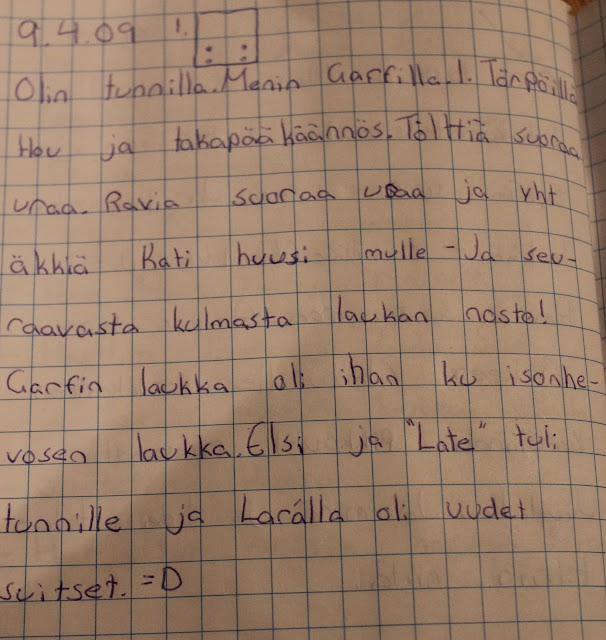 9.4.09 1.
Olin tunnilla. Menin Garfilla. 1. Tärpöillä
Hou ja takapääkäännös. Tölttiä suoraa
uraa. Ravia suoraa uraa ja yht
äkkiä Kati huusi mulle - Ja seu-
raavasta kulmasta laukan nosto!
Garfin laukka oli ihan ku isonhe-
vosen laukka. Elsi ja "Late" tuli
tunnille ja Larálla oli uudet
suitset. =D